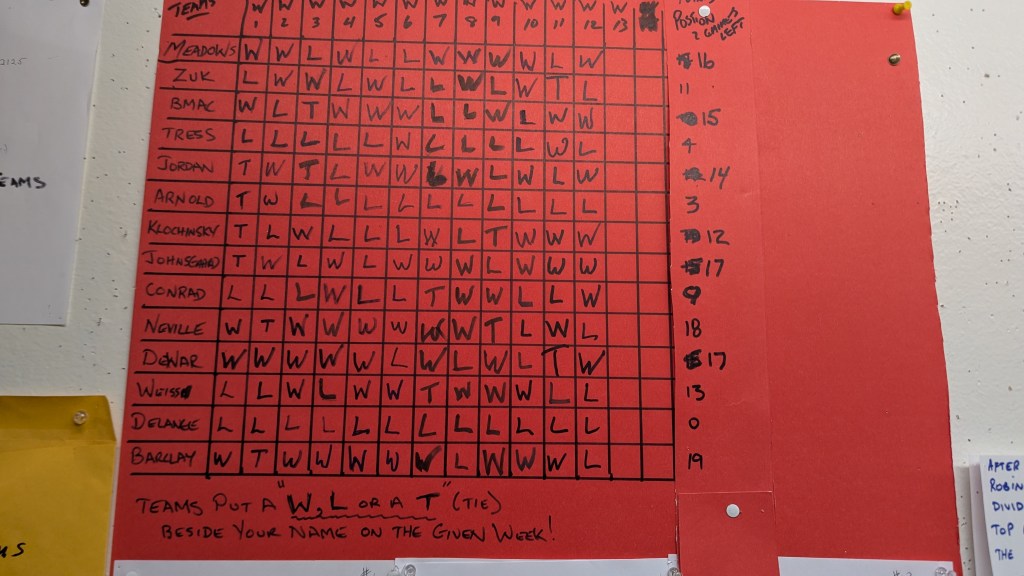 TEAMS W 1 W 2 W 3 W 4 W 5 W 6 W 7 W 8 W 9 W 10 W 11 W 12 W 13
POSITION
2 GAMES
LEFT
MEADOWS W W L W L L W W W W L W 16
ZUK L W W L W L L W L W T L 11
BMAC W L T W W W L L W L W W 15
TRESS L L L L L W L L L L W L 4
JORDAN T W T L W W L W L W L W 14
ARNOLD T W L L L L L L L L L L 3
KLOCHINSKY T L W L L L W L T W W W 12
JOHNSGAARD T W L W L W W W L W W W 17
CONRAD L L L W L L T W W L L W 9
NEVILLE W T W W W W W W T L W L 18
DEWAR W W W W W L W L W L T W 17
WEISS L L W L W W T W W W L L 13
DELANGE L L L L L L L L L L L L 0
BARCLAY W T W W W W W L W W W L 19
TEAMS PUT A "W, L OR A T" (TIE)
BESIDE YOUR NAME ON THE GIVEN WEEK!
EAMS
AFTER
ROBIN
DIVID
TOP
THE